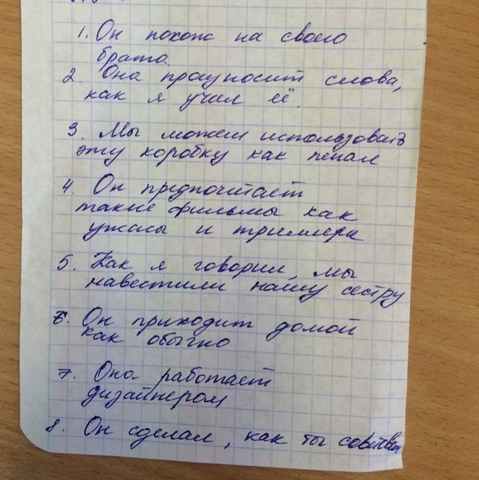 1. Он похож на своего
брата.
2. Она произносит слова,
как я учил её.
3. Мы можем использовать
эту коробку как пенал
4. Он предпочитает
такие фильмы как
ужасы и триллера
5. Как я говорил, мы
навестили нашу сестру
6. Он приходит домой
как обычно
7. Она работает
дизайнером
8. Он сделал, как ты